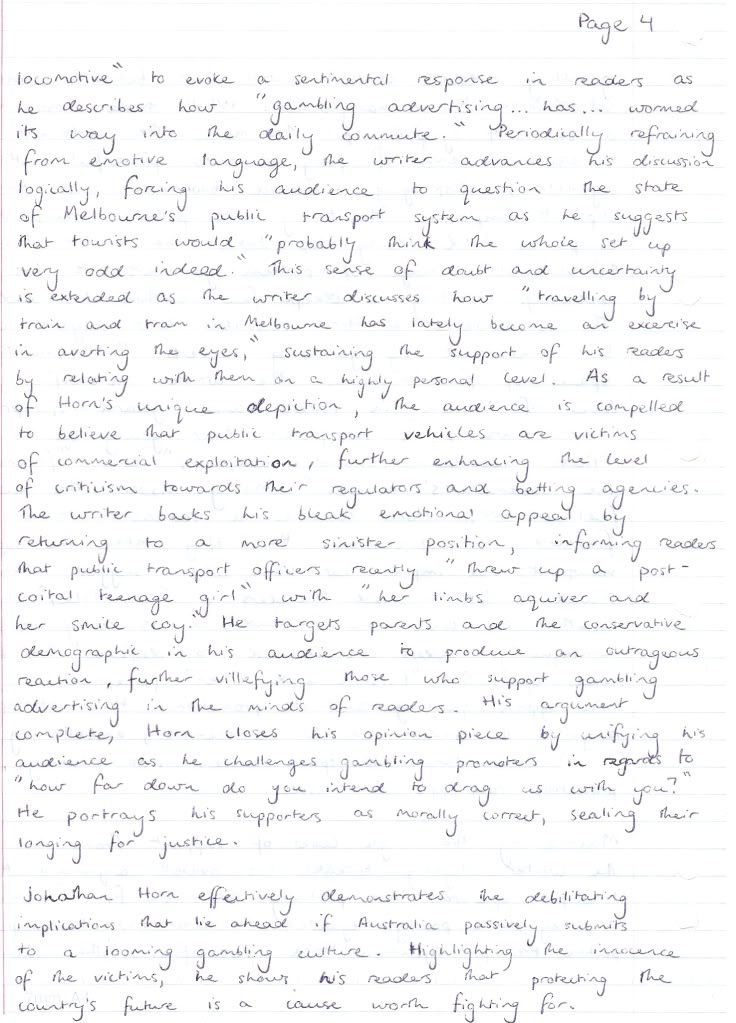 Page 4
locomotive" to evoke a sentimental response in readers as
he describes how "gambling advertising... has... wormed
its way into the daily commute." Periodically refraining
from emotive language, the writer advances his discussion
logically, forcing his audience to question the state
of Melbourne's public transport system as he suggests
that tourists would "probably think the whole set up
very odd indeed." This sense of doubt and uncertainty
is extended as the writer discusses how "travelling by
train and tram in Melbourne has lately become an excercise
in averting the eyes," sustaining the support of his readers
by relating with them on a highly personal level. As a result
of Horn's unique depiction, the audience is compelled
to believe that public transport vehicles are victims
of commercial exploitation, further enhancing the level
of criticism towards their regulators and betting agencies.
The writer backs his bleak emotional appeal by
returning to a more sinister position, informing readers
that public transport officers recently "threw up a post-
coital teenage girl" with "her limbs aquiver and
her smile coy." He targets parents and the conservative
demographic in his audience to produce an outrageous
reaction, further villefying those who support gambling
advertising in the minds of readers. His argument
complete, Horn closes his opinion piece by unifying his
audience as he challenges gambling promoters in regards to
"how far down do you intend to drag us with you?"
He portrays his supporters as morally correct, sealing their
longing for justice.
Johathan Horn effectively demonstrates the debilitating
implications that lie ahead if Australia passively submits
to a looming gambling culture. Highlighting the innocence
of the victims, he shows his readers that protecting the
country's future is a cause worth fighting for.